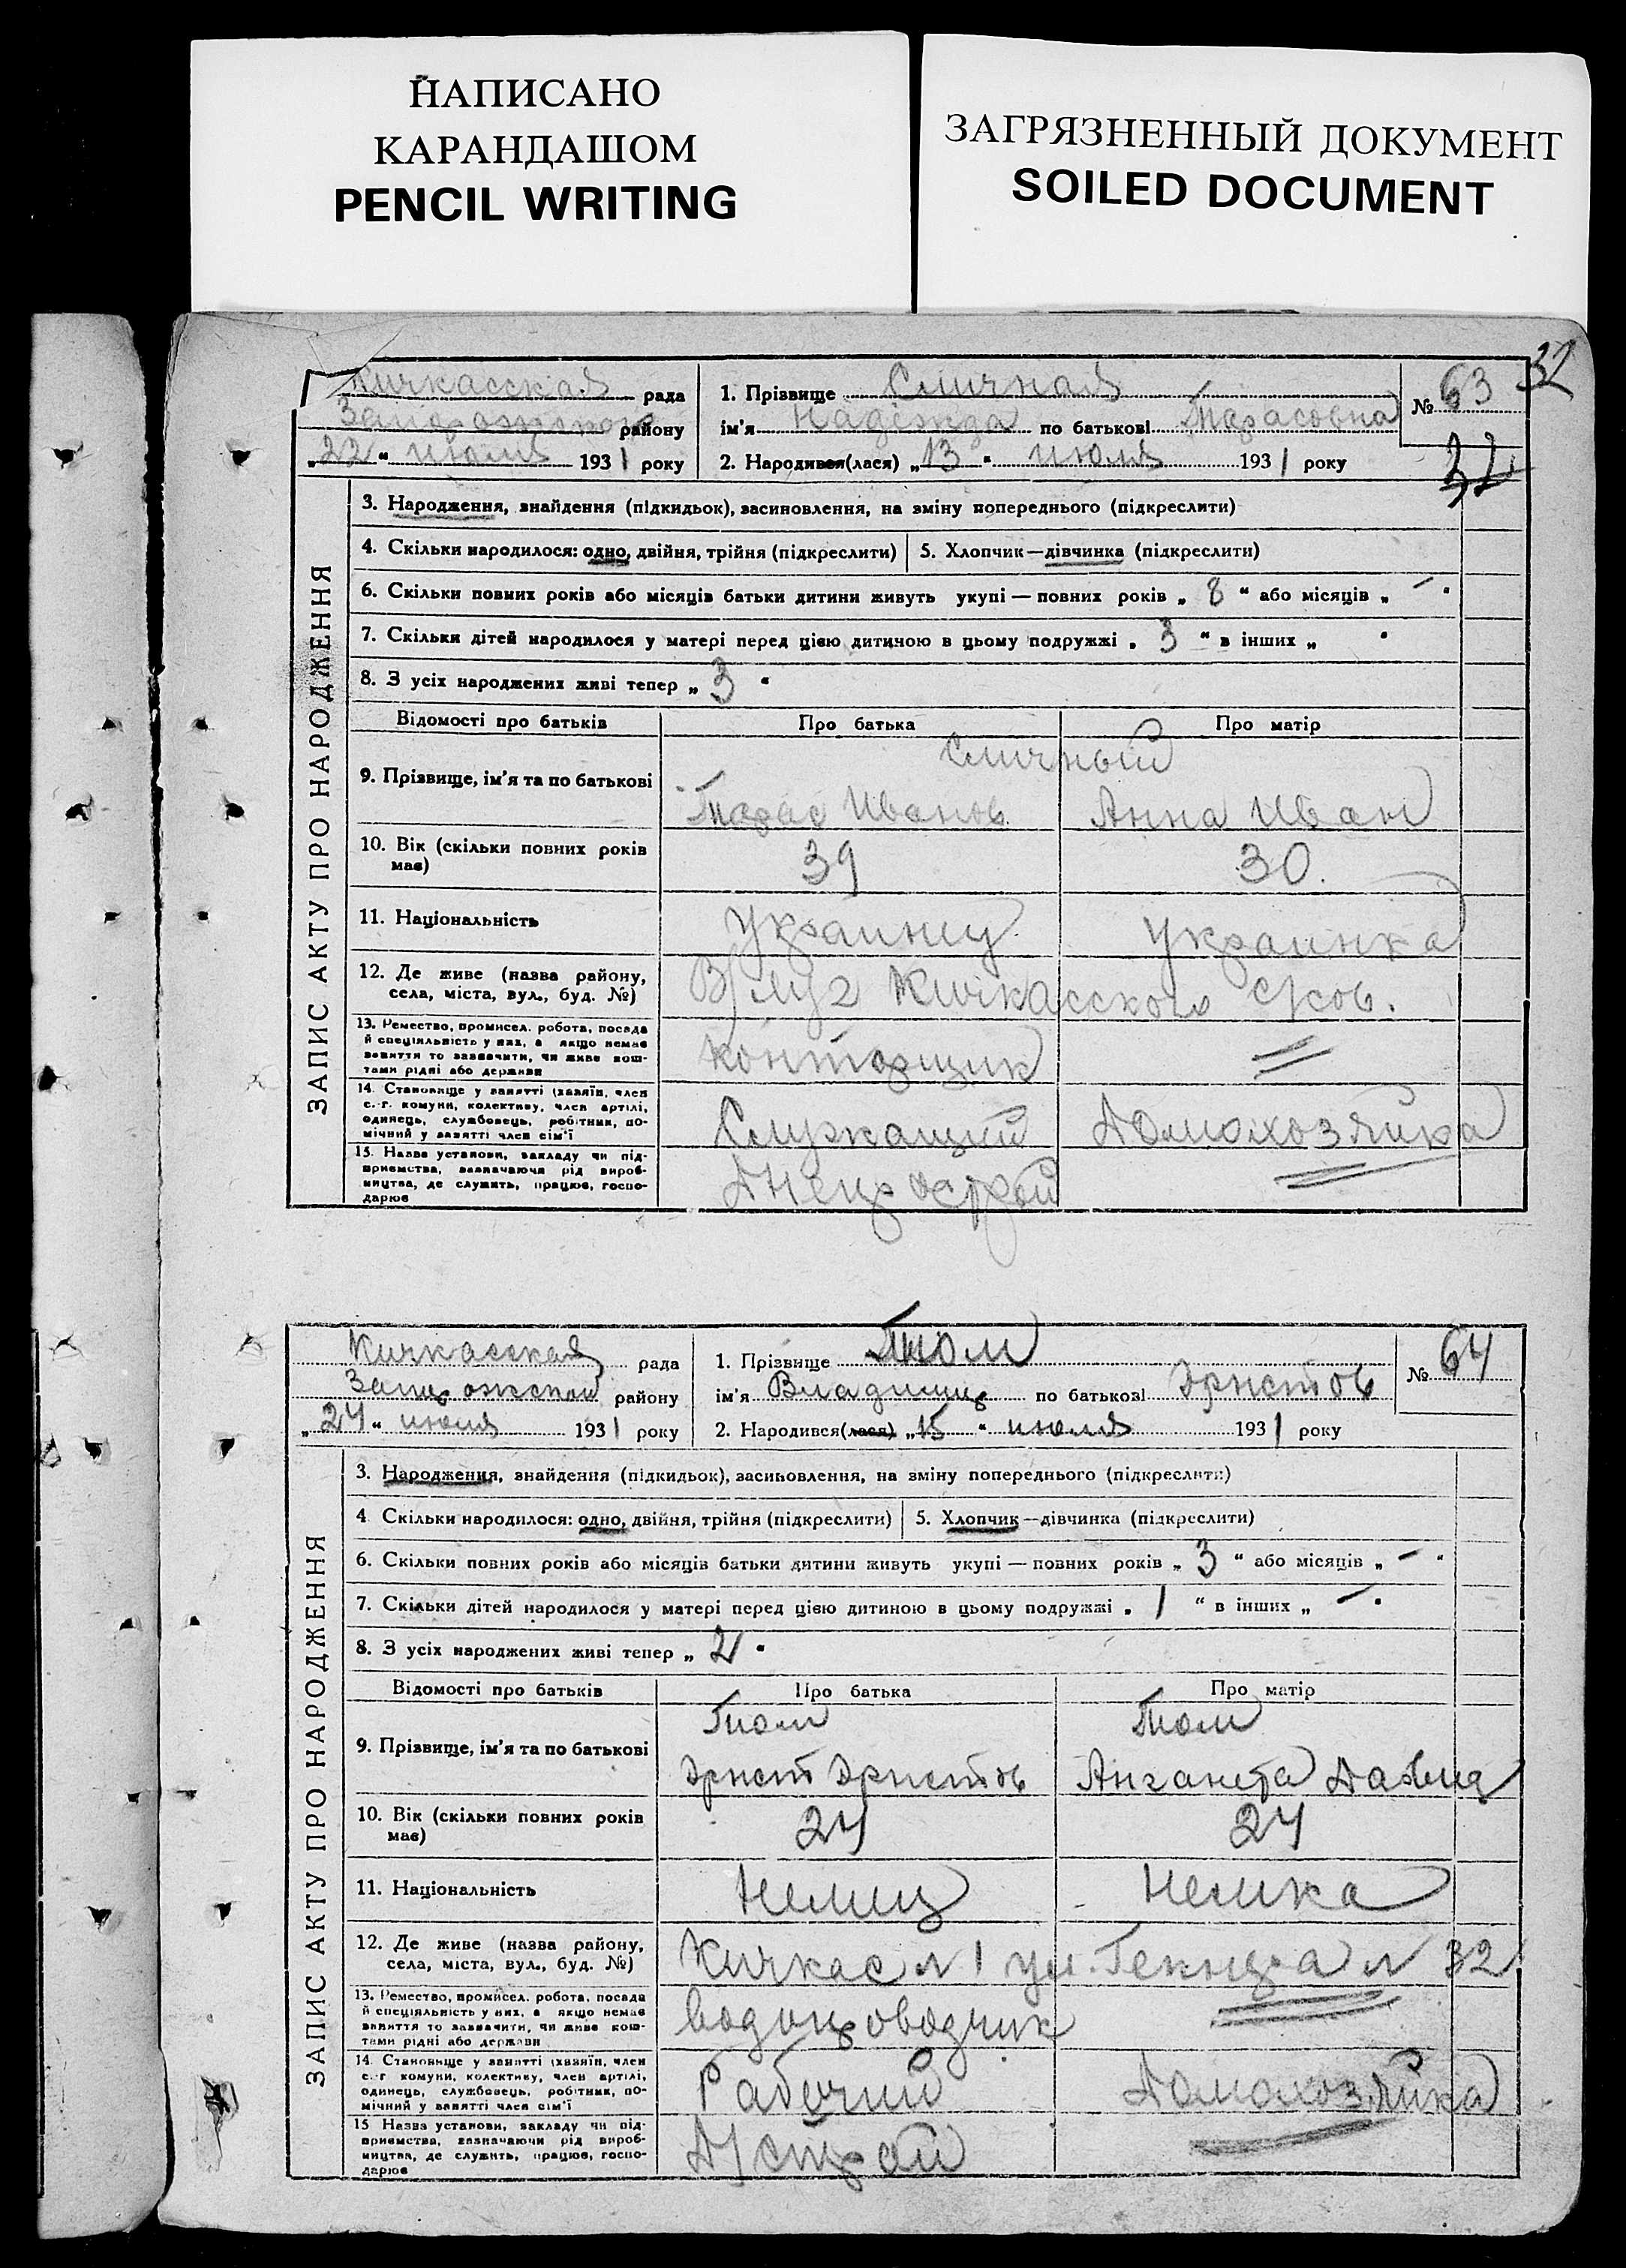 НАПИСАНО
КАРАНДАШОМ
PENCIL WRITING
ЗАГРЯЗНЕННЫЙ ДОКУМЕНТ
SOILED DOCUMENT
32
Кичкасская рада
района
"22" июля 1931 року
1. Прізвище Смичная
ім'я Надежда по батькові Тарасовна
2. Народився(лася) "13" июля 1931 року
№ 63
32
ЗАПИС АКТУ ПРО НАРОДЖЕННЯ
3. Народження, знайдення (підкидьок), засиновлення, на зміну попереднього (підкреслити)
4. Скільки народилося: одно, двійня, трійня (підкреслити) 5. Хлопчик—дівчинка (підкреслити)
6. Скільки повних років або місяців батьки дитини живуть укупі — повних років „ 8 " або місяців „ — "
7. Скільки дітей народилося у матері перед цією дитиною в цьому подружжі „ 3 " в інших „ "
8. З усіх народжених живі тепер „ 3 "
Відомості про батьків Про батька Про матір
9. Прізвище, ім'я та по батькові
Смичный
Тарас Иванов. Анна Иван
10. Вік (скільки повних років має) 39 30.
11. Національність Украинец Украинка
12. Де живе (назва району, села, міста, вул., буд. №) Кичкасского с/сов.
13. Ремество, промисел. робота, посада й спеціяльність у них, а якщо немає заняття то зазначити, чи живе коштами рідні або держави
Конторщик
14. Становище у занятті (хазяїн, член с.-г. комуни, колективу, член артілі, одинець, службовець, робітник, помічний у занятті член сім'ї
Служащий Домохозяйка
15. Назва установи, закладу чи підприємства, зазначаючи рід виробництва, де служить, працює, господарює
Днепрострой
Кичкасская рада
Запорожской району
"24" июля 1931 року
1. Прізвище Тиом
ім'я Владимир по батькові Эрнстов
2. Народився(лася) "15" июля 1931 року
№ 64
ЗАПИС АКТУ ПРО НАРОДЖЕННЯ
3. Народження, знайдення (підкидьок), засиновлення, на зміну попереднього (підкреслити)
4 Скільки народилося: одно, двійня, трійня (підкреслити) 5. Хлопчик—дівчинка (підкреслити)
6. Скільки повних років або місяців батьки дитини живуть укупі — повних років „ 3 " або місяців „ — "
7. Скільки дітей народилося у матері перед цією дитиною в цьому подружжі „ 1 " в інших „ — "
8. З усіх народжених живі тепер „ 2 "
Відомості про батьків Про батька Про матір
9. Прізвище, ім'я та по батькові
Тиом Тиом
Эрнст Эрнстов Давид
10. Вік (скільки повних років має) 24 24
11. Національність Немец Немка
12. Де живе (назва району, села, міста, вул., буд. №) Кичкас 1 ул. 32
13. Ремество, промисел. робота, посада й спеціяльність у них, а якщо немає заняття то зазначити, чи живе коштами рідні або держави
водопроводчик
14. Становище у занятті (хазяїн, член с.-г комуни, колективу, член артілі, одинець, службовець, робітник, помічний у занятті член сім'ї
Рабочий Домохозяйка
15 Назва установи, закладу чи підприємства, зазначаючи рід виробництва, де служить, працює, господарює
Д/строй